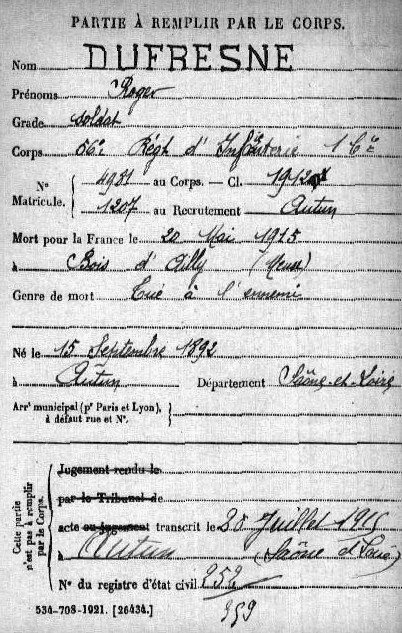 PARTIE À REMPLIR PAR LE CORPS.
Nom DUFRESNE
Prénoms Roger
Grade soldat
Corps 56e Régt d'Infanterie 1 Cie
N° Matricule. { 4981 au Corps. — Cl. 1912
1207 au Recrutement Autun
Mort pour la France le 20 Mai 1915
à Bois d'Ailly (Meuse)
Genre de mort Tué à l'ennemi
Né le 15 Septembre 1892
à Autun Département Saône-et-Loire
Arrt municipal (pr Paris et Lyon), à défaut rue et N°. }
Cette partie n'est pas à remplir par le Corps. {
Jugement rendu le
par le Tribunal de
acte ou jugement transcrit le 28 Juillet 1915
à Autun (Saône et Loire)
N° du registre d'état civil 252
359
534-708-1921. [26434.]